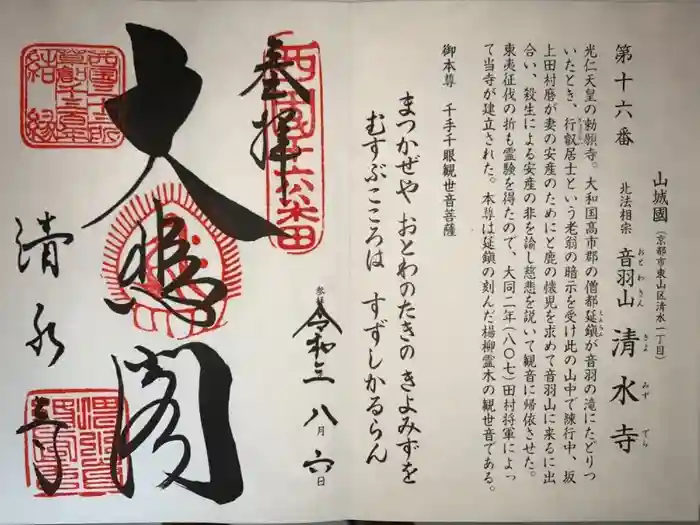 山城國（京都市東山区清水一丁目）
第十六番 北法相宗 音羽山 清水寺
おとわさん きよみずでら
光仁天皇の勅願寺。大和国高市郡の僧都延鎮が音羽の滝にたどりつ
いたとき、行叡居士という老翁の暗示を受け此の山中で練行中、坂
上田村磨が妻の安産のためにと鹿の懐児を求めて音羽山に来るに出
合い、殺生による安産の非を諭し慈悲を説いて観音に帰依させた。
東夷征伐の折も霊験を得たので、大同二年（八〇七）田村将軍によっ
て当寺が建立された。本尊は延鎮の刻んだ楊柳霊木の観世音である。
御本尊 千手千眼観世音菩薩
まつかぜや おとわのたきの きよみずを
むすぶこころは すずしかるらん
令和三八月六日
奉拝
西国十六番
大悲閣
清水寺
結縁